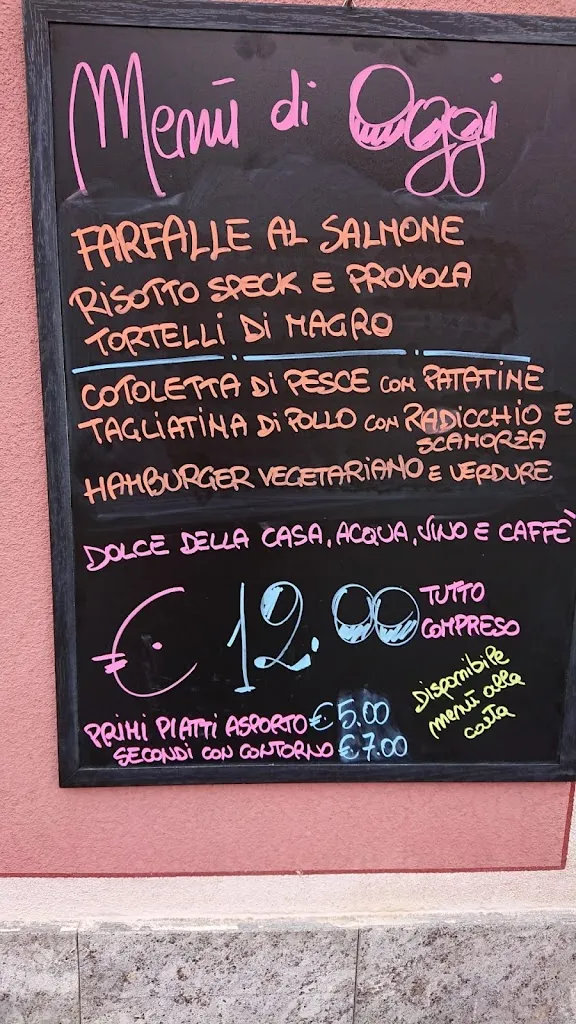 Menù di Oggi
FARFALLE AL SALMONE
RISOTTO SPECK E PROVOLA
TORTELLI DI MAGRO
COTOLETTA DI PESCE CON PATATINE
TAGLIATINA DI POLLO CON RADICCHIO E
SCAMORZA
HAMBURGER VEGETARIANO E VERDURE
DOLCE DELLA CASA, ACQUA, VINO E CAFFE'
€. 12.00 TUTTO
COMPRESO
PRIMI PIATTI ASPORTO € 5.00
SECONDI CON CONTORNO € 7.00
Disponibile
menù alla
carta